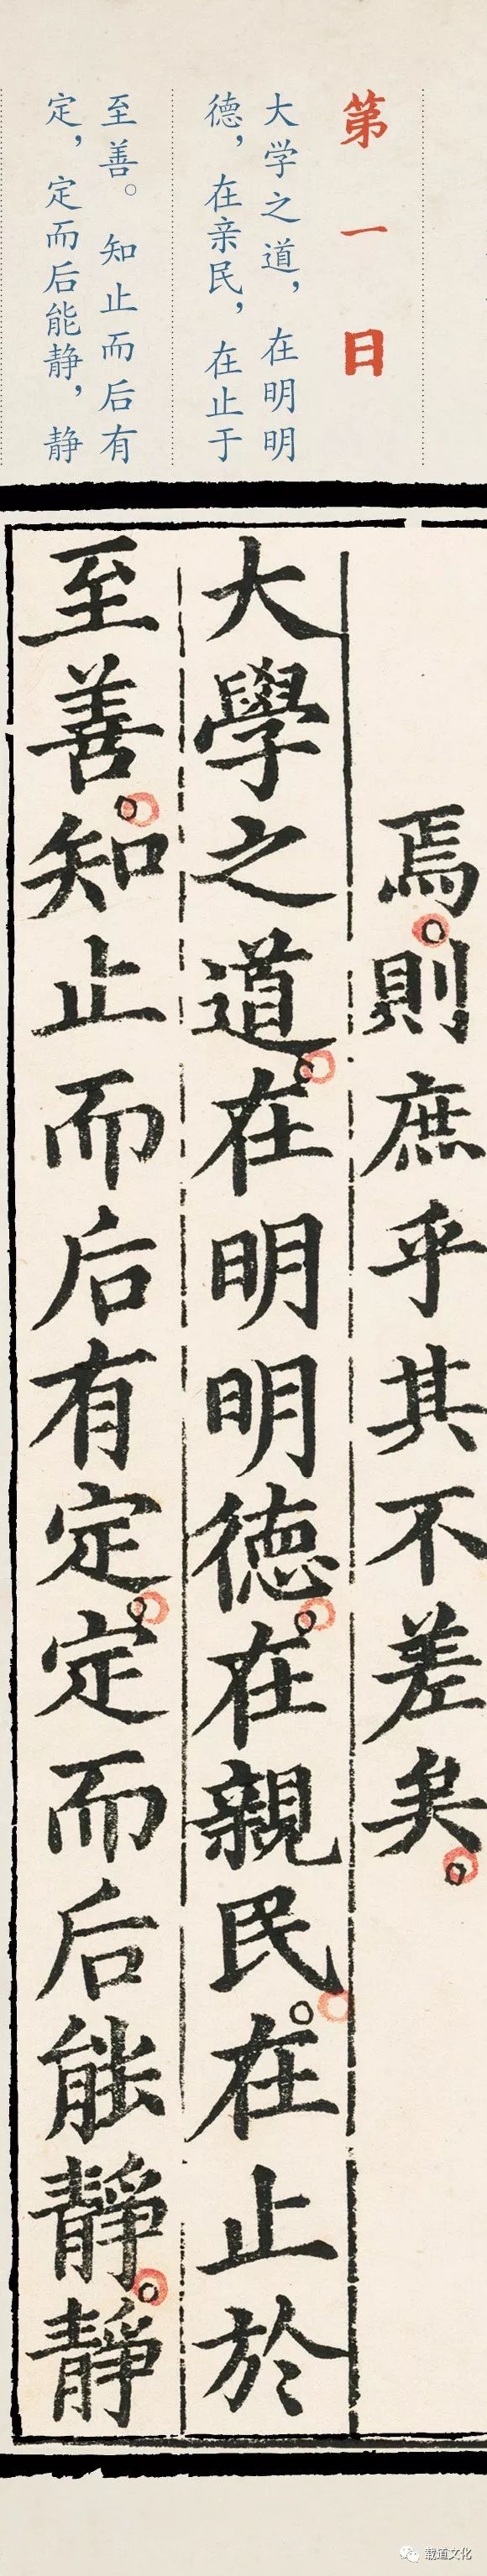 第一日
大学之道，在明明
德，在亲民，在止于
至善。知止而后有
定，定而后能静，静
焉則庶乎其不差矣。
大學之道。在明明德。在親民。在止於
至善。知止而后有定。定而后能靜。靜
载道文化